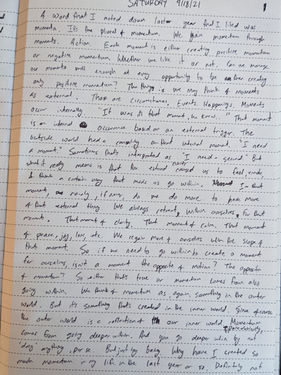 SATURDAY 9/18/21
1
A word that I noted down last year that I liked was
momenta. Its the plural of momentum. We gain momentum through
moments. Action. Each moment is either creating positive momentum
or negative momentum, whether we like it or not. Can we manage
our moments well enough at every opportunity to be creating
only positive momentum? The thing is we may think of moments
as external. These are circumstances. Events. Happenings. Moments
occur internally. "It was in that moment, he knew." That moment
is an internal occurrence based on an external trigger. The
outside world had a meaning on that internal moment. "I need
a moment." Sometimes that's interpreted as "I need a second." But
what it really means is that the external caused us to feel, and
& think a certain way that needs us go within. In that
moment, rarely, if ever, do we do more to gain more
of that external thing. We always retreat within ourselves for that
moment. That moment of clarity. That moment of calm. That moment
of peace, joy, love, etc. We regain more of ourselves within the scope of
that moment. So if we need to go within to create a moment
for ourselves, isn't a moment the opposite of motion? The opposite
of momentum? So either that's true or momentum comes from also
going within. We think of momentum as, again, something in the outer
world. But its something that's created in the inner world. Given of course
the outer world is a reflection of our inner world. Momentum
comes from going deeper within. And you go deeper within by not
'doing' anything, per se. But just by being. Why have I created so
much momentum in my life in the last year or so. Definitely not